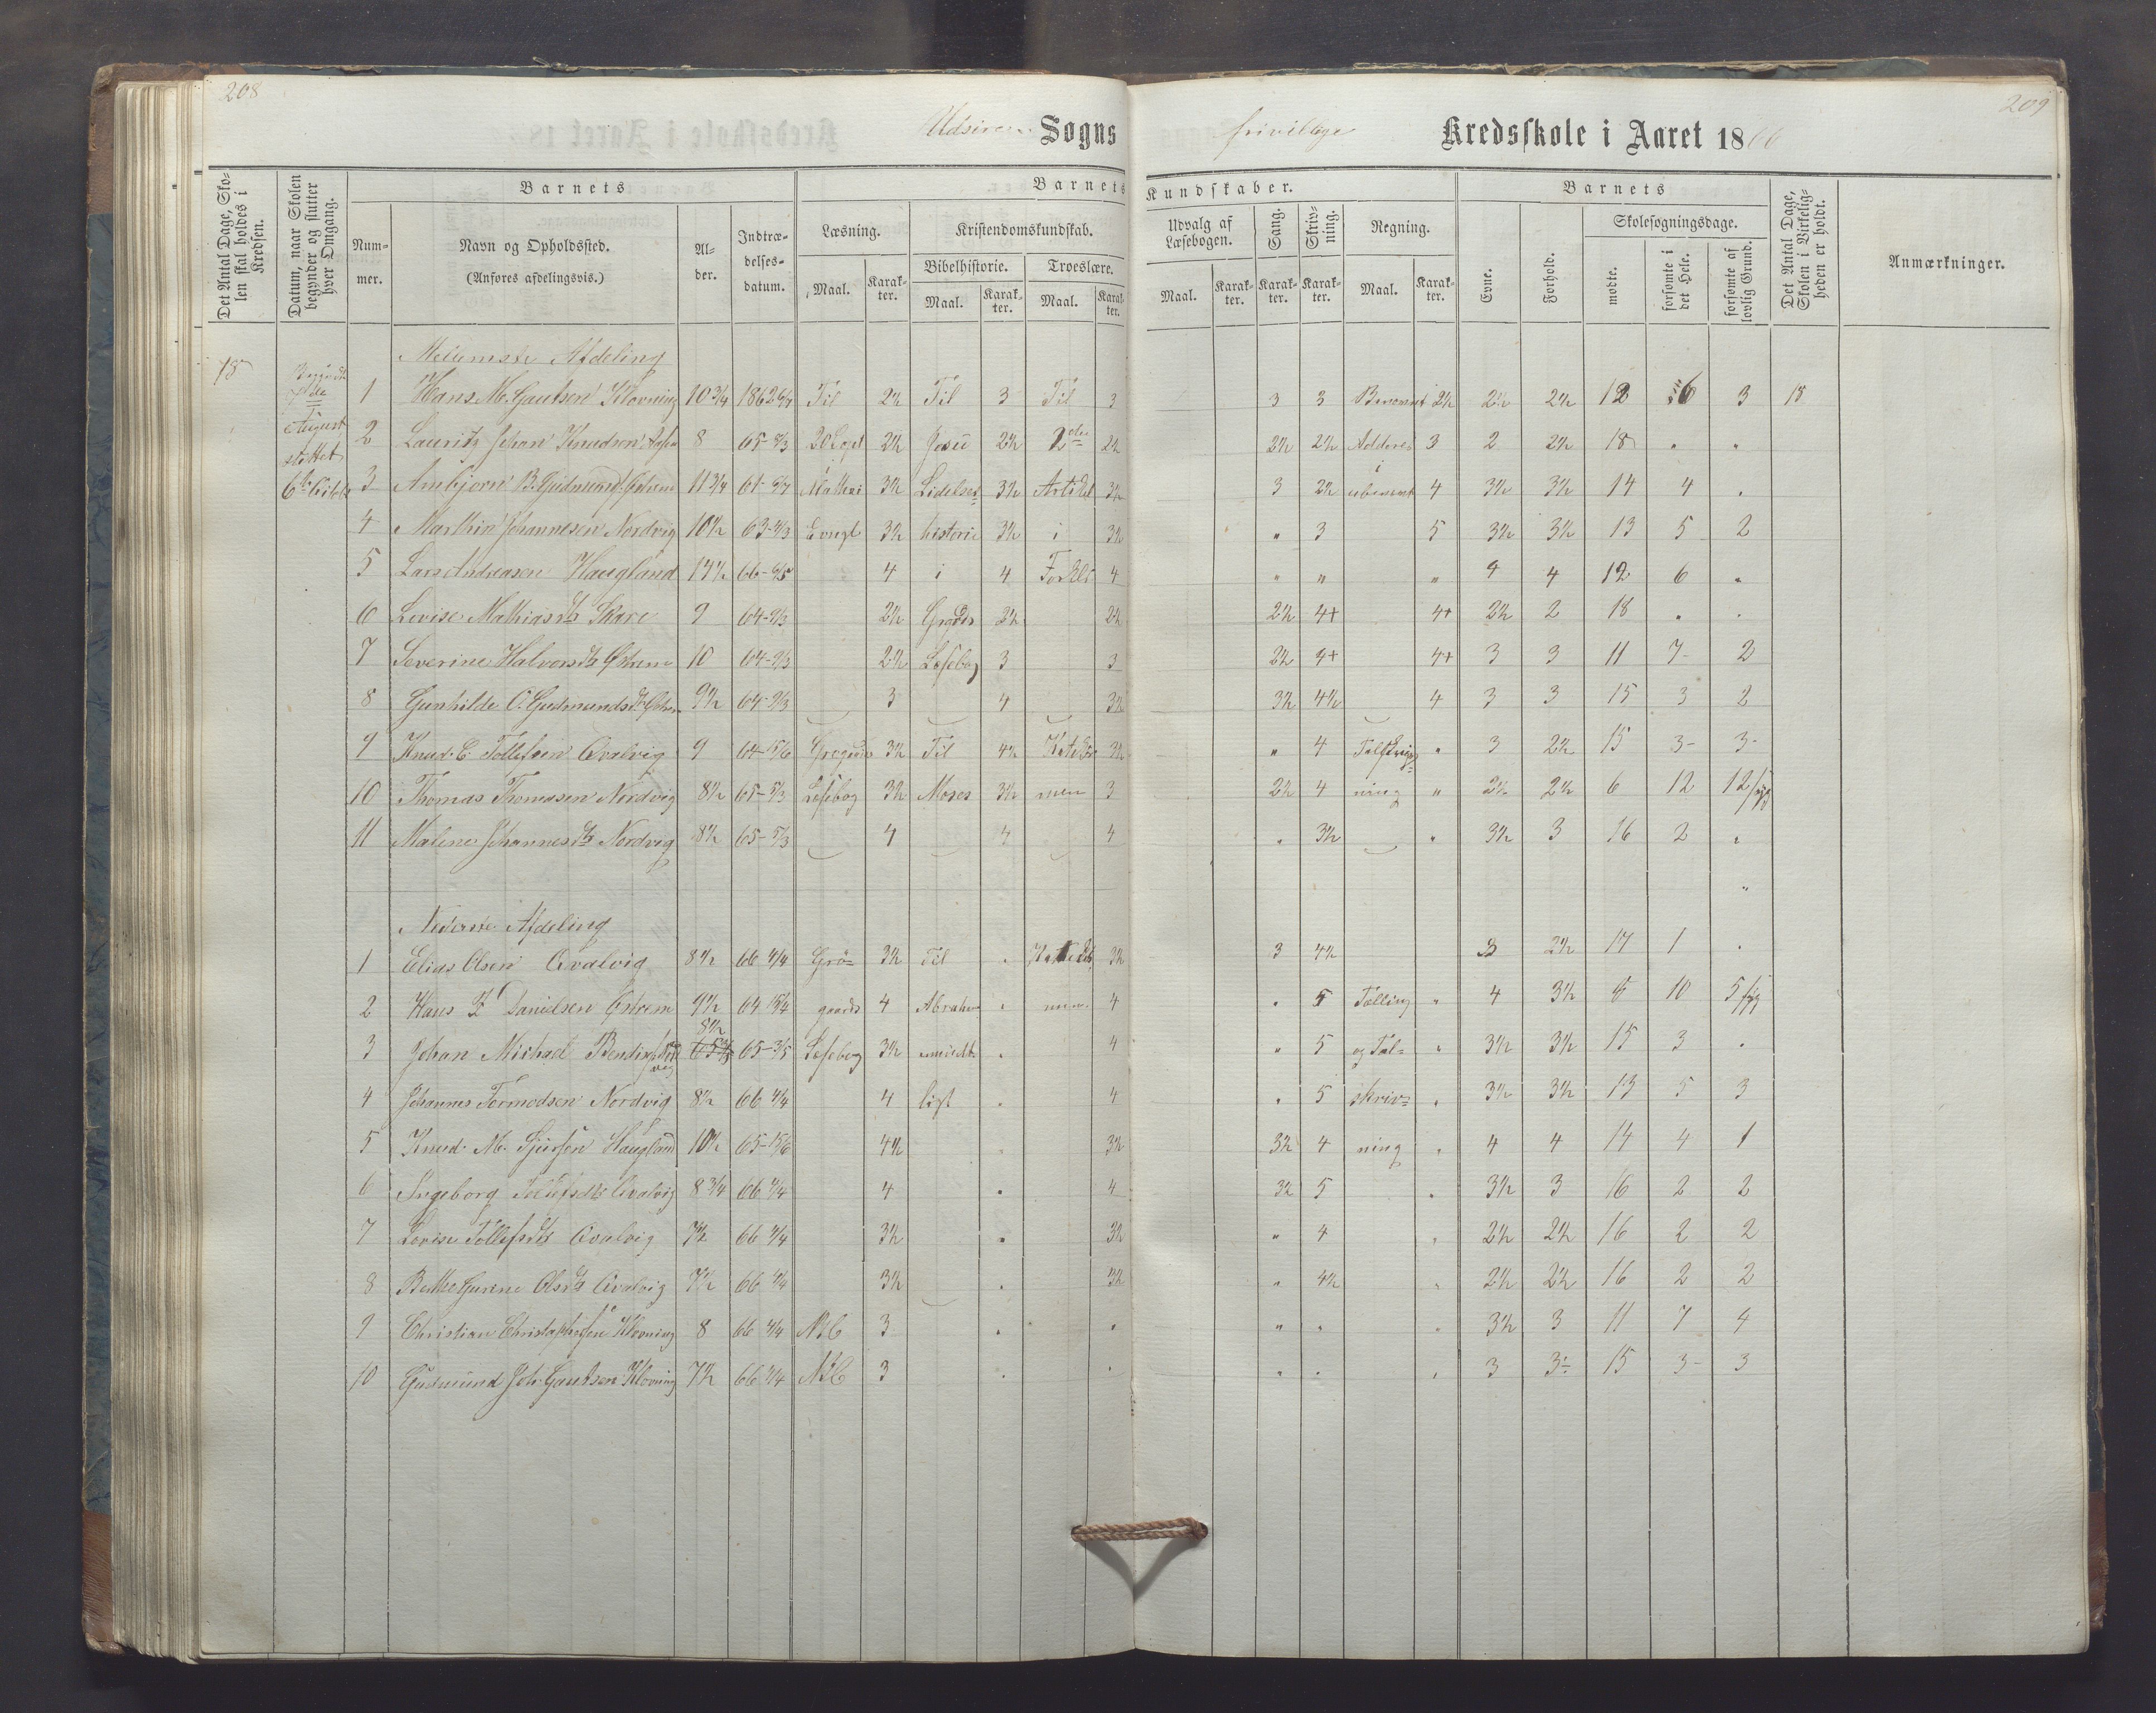 208
209
Udsire Sogns frivillige Kredsskole i Aaret 1866
Det Antal Dage, Skolen skal holdes i Kredsen.
Datum, naar Skolen begynder og slutter hver Omgang.
Barnets
Nummer.
Navn og Opholdssted.
(Anføres afdelingsvis.)
Alder.
Indtrædelsesdatum.
Barnets Kundskaber.
Læsning.
Maal. Karakter.
Kristendomskundskab.
Bibelhistorie.
Maal. Karakter.
Troeslære.
Maal. Karakter.
Udvalg af Læsebogen.
Maal. Karakter.
Sang.
Karakter.
Skrivning.
Karakter.
Regning.
Maal. Karakter.
Barnets
Evne.
Forhold.
Skolesøgningsdage.
mødte.
forsømte i det Hele.
forsømte af lovlig Grund.
Det Antal Dage, Skolen i Virkeligheden er holdt.
Anmærkninger.
18
August
6te
Mellemste Afdeling
1 Hans M. Gautsen Klovning 10 3/4 1862 Til 2½ Til 3 Til 3 3 3 Benævnt 2½ 2½ 2½ 12 6 3 18
2 Laurits Johan Knudsen 8 65 2½ Josu 2½ 2den 2½ 2½ 2½ Addere 3 2 2½ 18 " "
3 B. Gudmunds. 11 3/4 61 Mathæi 3½ Lidelses= 3½ Artikel 3½ 3 2½ ubenevnt 4 3½ 3½ 14 4 .
4 Marthin Johannesen Nordvig 10½ 63 Evngl 3½ historie 3½ i 3½ " 3 5 3½ 3½ 13 5 2
5 Lars Andreasen Haugland 14½ 66 4 i 4 Forkl 4 " " " 4 4 12 6 "
6 Lovise Mathiasdtr Skare 9 64 2½ Grgds 2½ 2½ 2½ 4+ 4+ 2½ 2 18 " .
7 Severine Halvorsdtr Østrem 10 64 2½ Læsebog 3 3 2½ 4+ 4+ 3 3 11 7 2
8 Gunhilde O. Gudmundsdtr 9½ 64 3 4 3½ 3½ 4½ 4 3 3 15 3 2
9 Knud E. Tollefsen Qvalvig 9 64 15/6 3½ Til 4½ Katekis 3½ " 4 Talskriv= " 3 2½ 15 3 3
10 Thomas Thomassen Nordvig 8½ 65 Læsebog 3½ Moses 3½ men 3 2½ 4 ning " 2½ 2½ 6 12 12
11 Malene Johannesdtr Nordvig 8½ 65 4 4 4 . 3½ " 3½ 3 16 2 "
Nederste Afdeling
1 Elias Olsen Qvalvig 8½ 66 4/4 Grö= 3½ Til . Katekis 3½ 3 4½ 3 2½ 17 1 .
2 Hans Danielsen Østrem 9½ 64 gaards 4 Abraham . men 4 . 5 Tælling " 4 3½ 8 10 5
3 Johan Michael 8½ 65 Læsebog 3½ . 4 " 5 og Tal= " 3½ 3½ 15 3 .
4 Johannes Tormodsen Nordvig 8½ 66 4/4 4 ligt . 4 . 5 skriv= . 3½ 3½ 13 5 3
5 Knud M. Sjursen Haugland 10½ 65 15/6 4½ 3½ 3½ 4 ning . 4 4 14 4 1
6 Ingeborg Qvalvig 8 3/4 66 4/4 4 . 4 3½ 5 . 3½ 3 16 2 2
7 Lovise Tollefsdtr Qvalvig 7½ 66 4/4 3½ . 3½ " 4 . 2½ 2½ 16 2 2
8 Olsdtr Qvalvig 7½ 66 4/4 3½ . 3½ " 4½ . 2½ 2½ 16 2 2
9 Christian Christophersen Klovning 8 66 4/4 3 . " " . . 3½ 3 11 7 4
10 Gudmund Joh. Gautsen Klovning 7½ 66 4/4 3 . . . . . 3 3 15 3 3